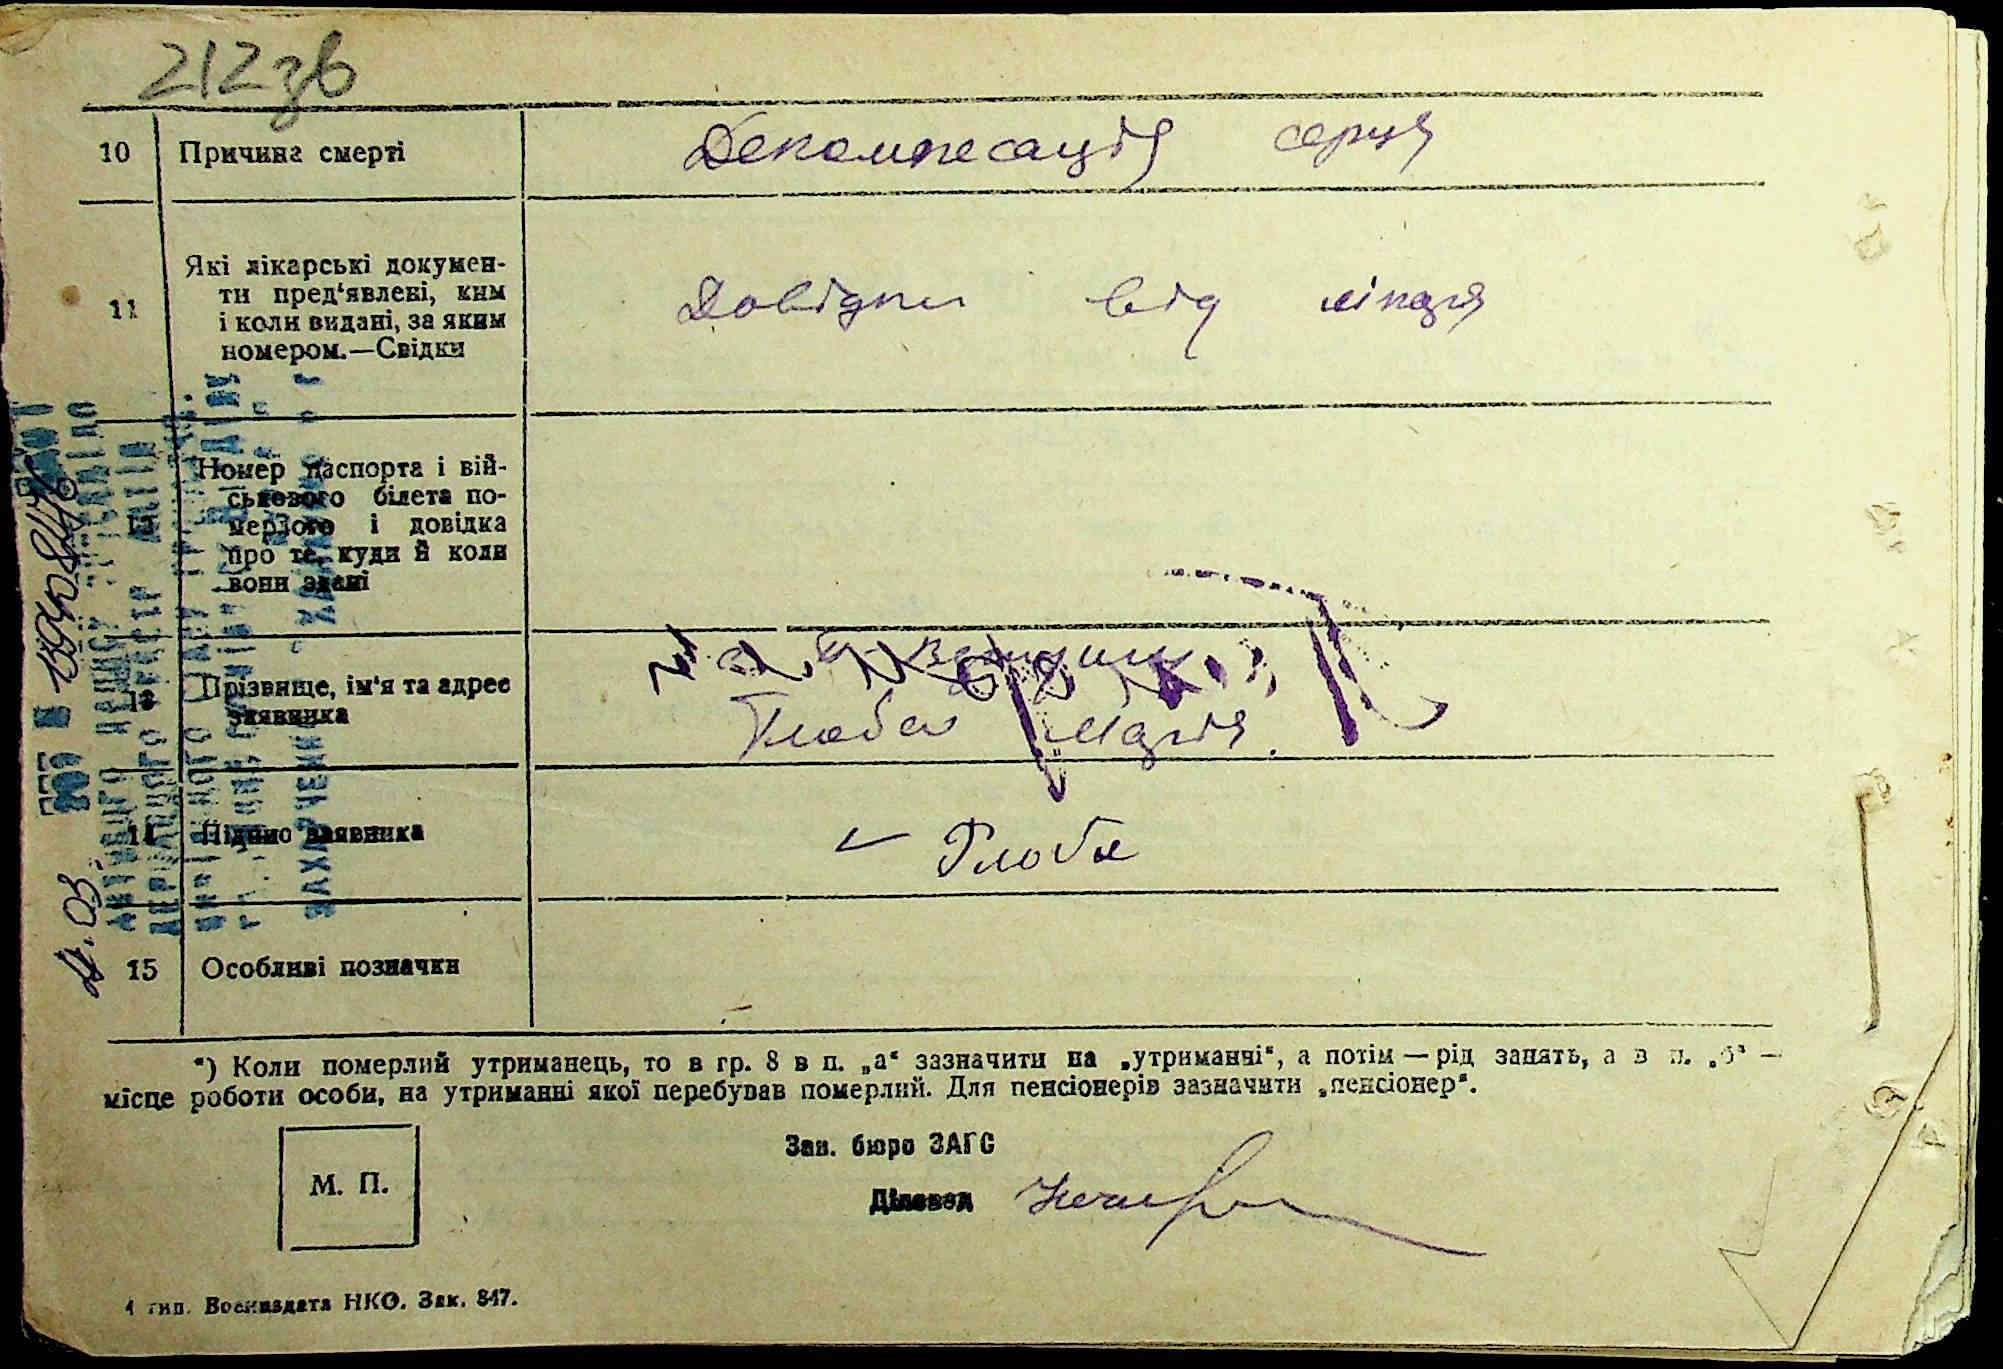 212зв
10 Причина смерті Декомпесація серця
11 Які лікарські докумен-
ти пред'явлені, ким
і коли видані, за яким
номером.—Свідки
Довідки від лікаря
12 Номер паспорта і вій-
ськового білета по-
мерлого і довідка
про те, куди й коли
вони здані
13 Прізвище, ім'я та адрес
заявника
Глоба Марія.
14 Підпис заявника Глоба
15 Особливі позначки
*) Коли померлий утриманець, то в гр. 8 в п. „а“ зазначити на „утриманні“, а потім — рід занять, а в п. „б“ —
місце роботи особи, на утриманні якої перебував померлий. Для пенсіонерів зазначити „пенсіонер“.
Зав. бюро ЗАГС
М. П.
Діловод
1 тип. Воениздата НКО. Зак. 847.